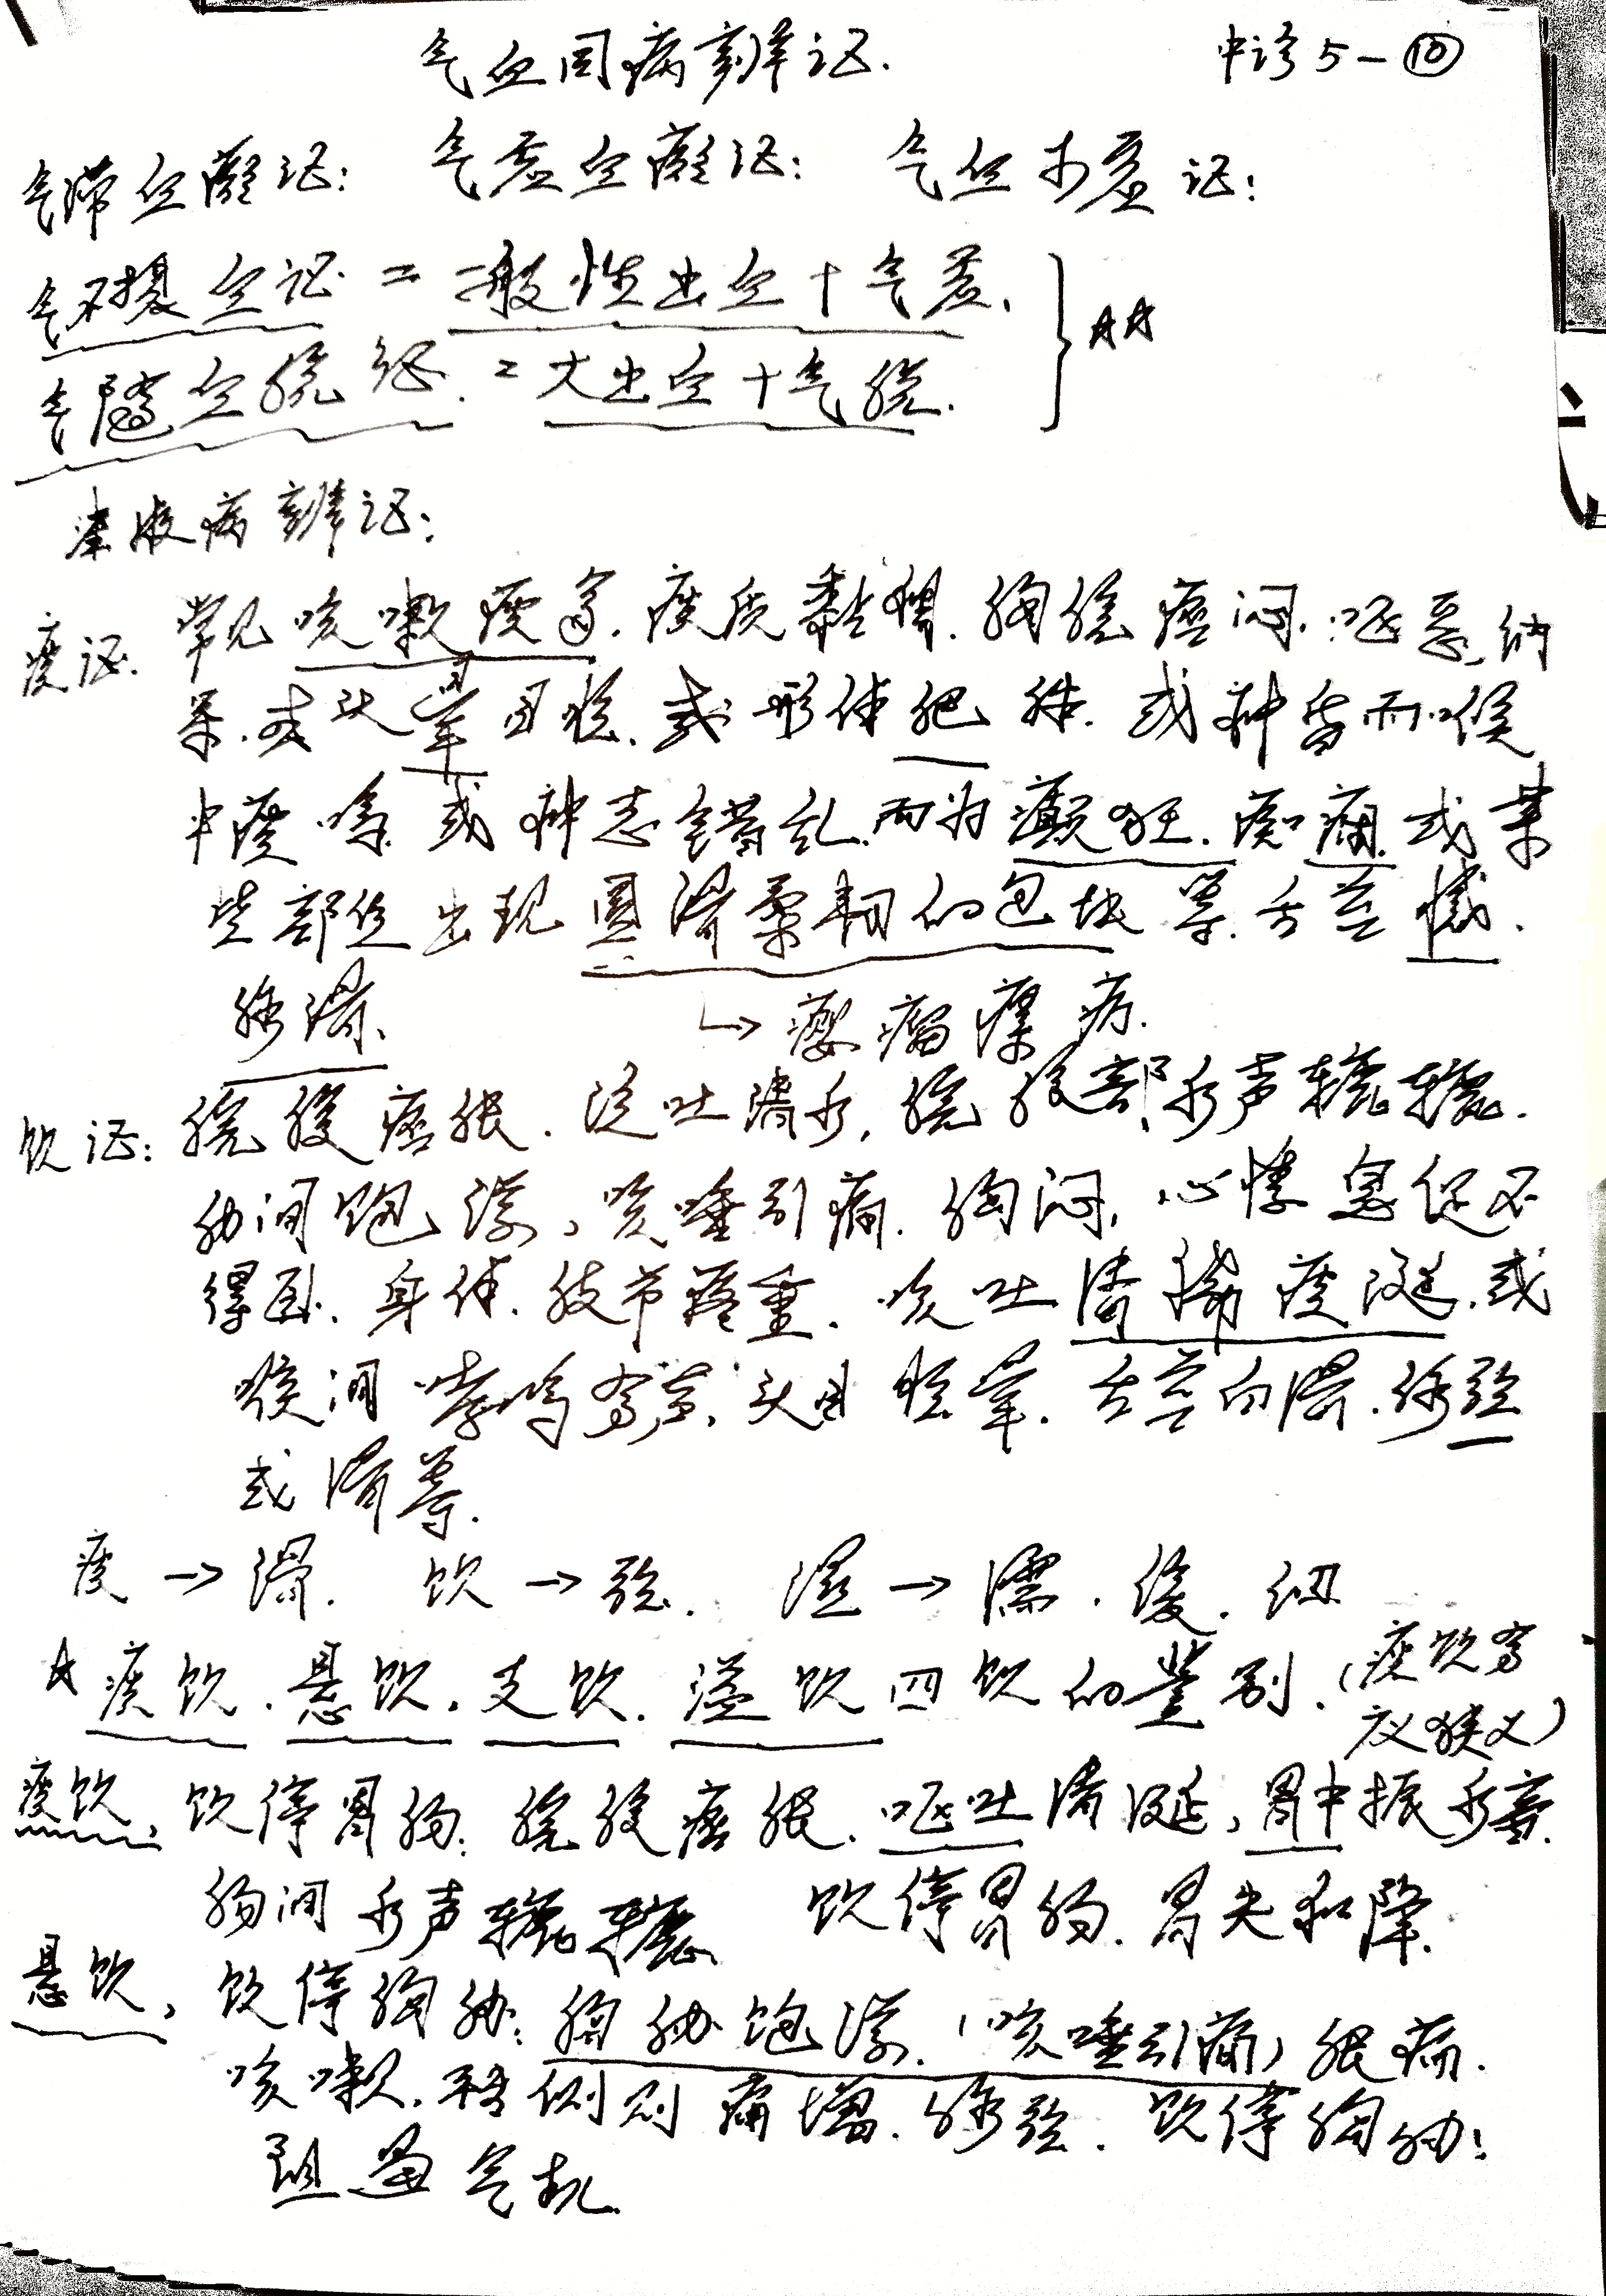 气血同病辨证. 中诊5-⑩
气滞血瘀证: 气虚血瘀证: 气血两虚证:
气不摄血证 = 一般性出血+气虚.
气随血脱证. = 大出血+气脱.
津液病辨证:
痰证. 常见咳嗽痰多.痰质黏稠.胸脘痞闷.呕恶,纳
呆.或头晕目眩.或形体肥胖.或神昏而喉
中痰鸣.或神志错乱.而为癫狂.痴.痫.或某
些部位出现圆滑柔韧的包块等.舌苔腻.
脉滑. ↳瘿瘤瘰疬.
饮证: 脘腹痞胀.泛吐清水,脘腹部水声辘辘.
肋间饱满、咳唾引痛.胸闷,心悸息促不
得卧.身体.肢节疼重.咳吐清稀痰涎.或
喉间哮鸣有声,头目眩晕.舌苔白滑.脉弦
或滑等.
痰→滑. 饮→弦. 湿→濡.缓.细
☆痰饮.悬饮.支饮.溢饮四饮的鉴别.(痰饮有
广义狭义)
痰饮、饮停胃肠:脘腹痞胀.呕吐清涎,胃中振水音.
肠间水声辘辘 饮停胃肠.胃失和降.
悬饮、饮停胸胁:胸胁饱满.(咳唾引痛)胀痛.
咳嗽.转侧则痛增.脉弦.饮停胸胁:
阻遏气机